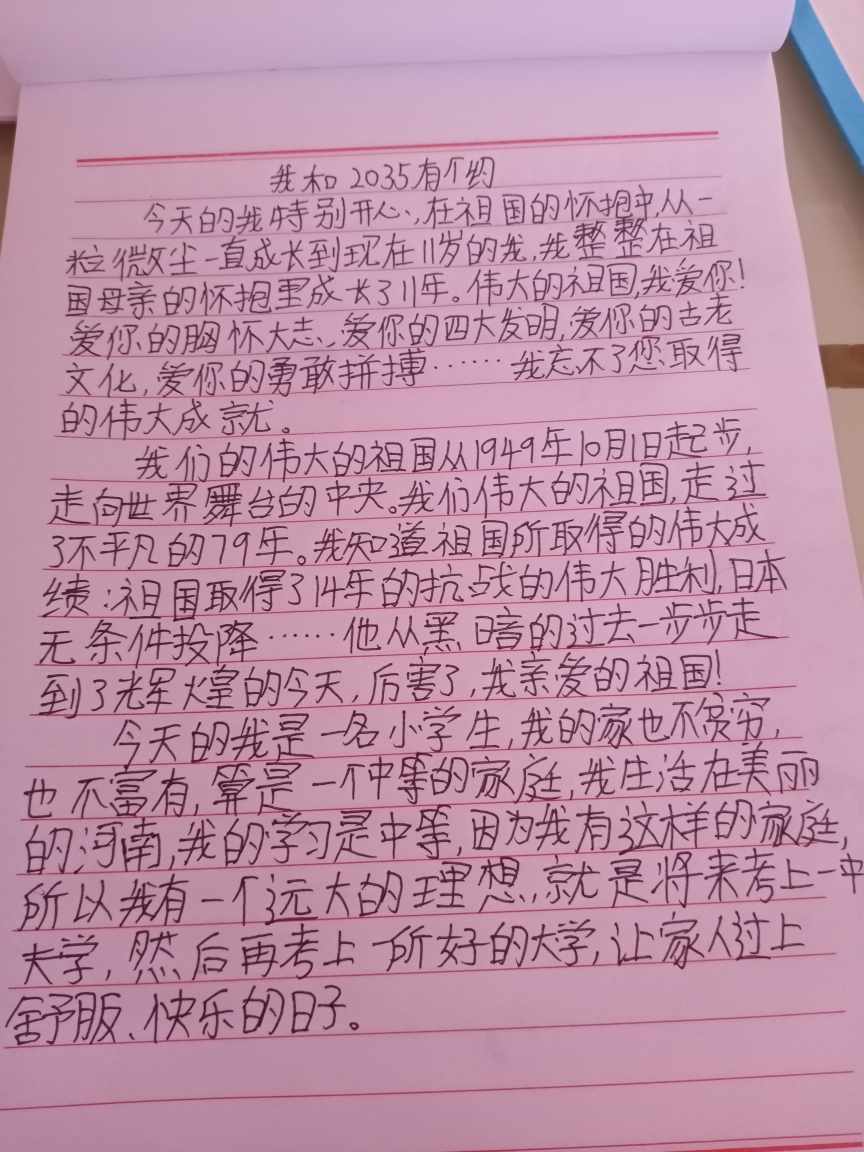 我和2035有个约
今天的我特别开心,在祖国的怀抱中,从一
粒微尘一直成长到现在11岁的我,我整整在祖
国母亲的怀抱里成长了11年。伟大的祖国,我爱你!
爱你的胸怀大志,爱你的四大发明,爱你的古老
文化,爱你的勇敢拼搏……我忘不了您取得
的伟大成就。
我们的伟大的祖国从1949年10月1日起步,
走向世界舞台的中央。我们伟大的祖国,走过
了不平凡的79年。我知道祖国所取得的伟大成
绩:祖国取得了14年的抗战的伟大胜利,日本
无条件投降……他从黑暗的过去一步步走
到了辉煌的今天,厉害了,我亲爱的祖国!
今天的我是一名小学生,我的家也不贫穷,
也不富有,算是一个中等的家庭,我生活在美丽
的河南,我的学习是中等,因为我有这样的家庭,
所以我有一个远大的理想,就是将来考上一中
大学,然后再考上一所好的大学,让家人过上
舒服、快乐的日子。